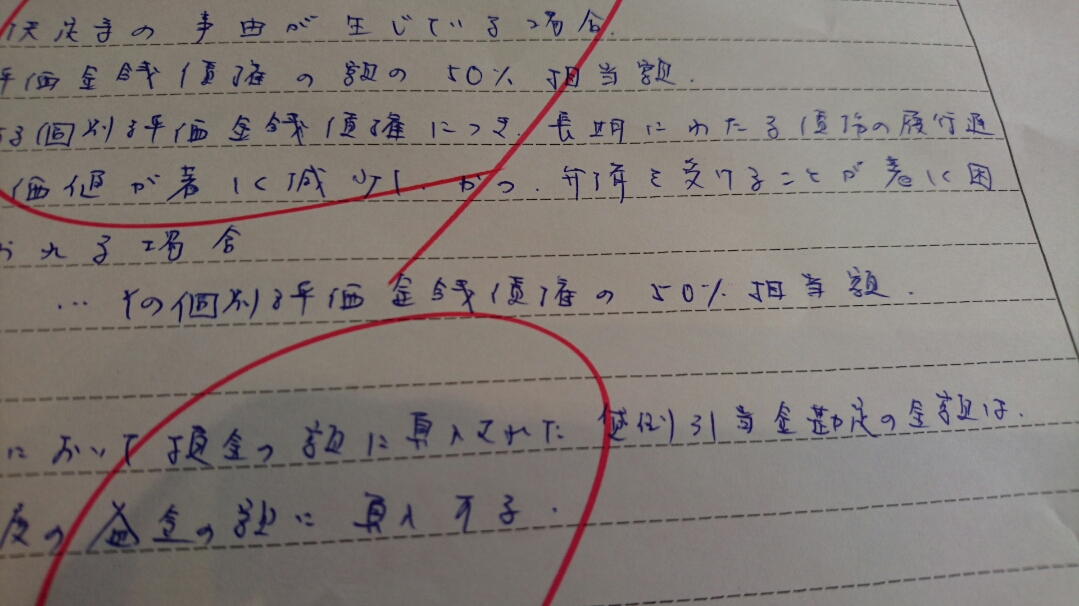 の事由が生じている場合.
評価金銭債権の額の50%相当額.
る個別評価金銭債権につき、長期にわたる債務の履行遅
価値が著しく減少し、かつ、弁済を受けることが著しく困
られる場合
… その個別評価金銭債権の50%相当額.
において損金の額に算入された貸倒引当金勘定の金額は、
度の益金の額に算入する.